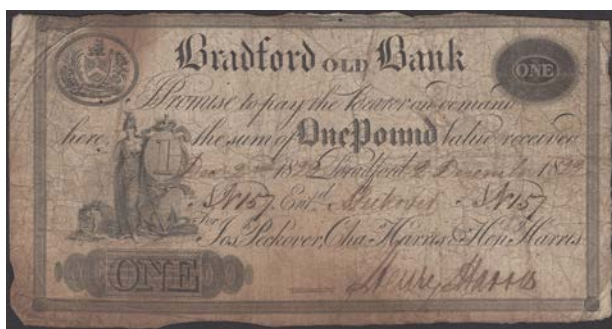 Bradford OLD Bank
ONE
Promise to pay the Bearer on demand
here the sum of One Pound Value received
1
2 1822 Bradford 2 December 1822
No 157 Ent.d Peckover No 157
For Jos. Peckover, Cha. Harris & Hen. Harris
ONE
Henry Harris